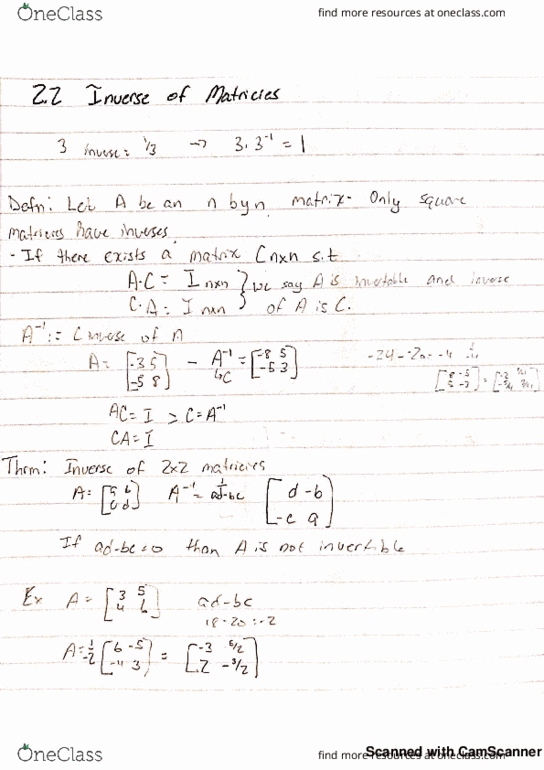 OneClass
find more resources at oneclass.com
2.2 Inverse of Matricies
3 inverse = 1/3 → 3 · 3⁻¹ = 1
Defn: Let A be an n by n matrix - Only square
matricies have inverses.
- If there exists a matrix Cnxn s.t
A·C = Inxn } we say A is invertable and inverse
C·A = Inxn } of A is C.
A⁻¹ := C inverse of A
A = [-3 5 -5 8] - A⁻¹ = [-8 5 -5 3]
↳C
AC = I > C = A⁻¹
CA = I
Thrm: Inverse of 2x2 matricies
A = [a b c d] A⁻¹ = 1/ad-bc [d -b -c a]
If ad-bc=0 than A is not invertible
Ex A = [3 5 4 6] ad-bc
18-20 = -2
A = 1/-2 [6 -5 -4 3] = [-3 5/2 2 -3/2]
OneClass
find more resources at oneclass.com
Scanned with CamScanner